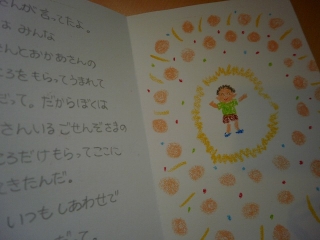 さんが言ってたよ。
みんな
さんとおかあさんの
ころをもらってうまれて
だって。だからぼくは
さんいるごせんぞさまの
ころだけもらってここに
きたんだ。
いつもしあわせで
だって。